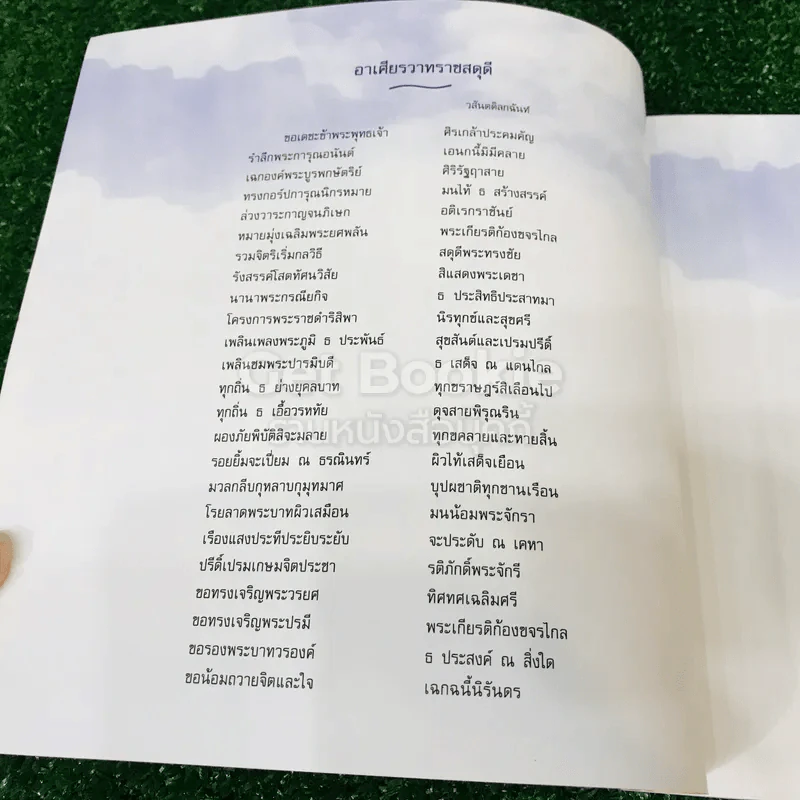 อาเศียรวาทราชสดุดี
วสันตดิลกฉันท์
ขอเดชะข้าพระพุทธเจ้า ศิรเกล้าประคมคัญ
รำลึกพระการุณอนันต์ เอนกนี้มิมีคลาย
เฉกองค์พระบูรพกษัตริย์ ศิริรัฐฤาสาย
ทรงกอร์ปการุณนิกรหมาย มนไท้ ธ สร้างสรรค์
ล่วงวาระกาญจนภิเษก อดิเรกราชันย์
หมายมุ่งเฉลิมพระยศพลัน พระเกียรติก้องขจรไกล
รวมจิตริเริ่มกลวิธี สดุดีพระทรงชัย
รังสรรค์โสตทัศนวิสัย สิแสดงพระเดชา
นานาพระกรณียกิจ ธ ประสิทธิประสาทมา
โครงการพระราชดำริสิพา นิรทุกข์และสุขศรี
เพลินเพลงพระภูมิ ธ ประพันธ์ สุขสันต์และเปรมปรีดิ์
เพลินชมพระปารมิบดี ธ เสด็จ ณ แดนไกล
ทุกถิ่น ธ ย่างยุคลบาท ทุกขราษฎร์สิเลือนไป
ทุกถิ่น ธ เอื้อวรหทัย ดุจสายพิรุณริน
ผองภัยพิบัติสิจะมลาย ทุกขคลายและหายสิ้น
รอยยิ้มจะเปี่ยม ณ ธรณินทร์ ผิวไท้เสด็จเยือน
มวลกลีบกุหลาบกุมุทมาศ บุปผชาติทุกชานเรือน
โรยลาดพระบาทผิวเสมือน มนน้อมพระจักรา
เรืองแสงประทีประยิบระยับ จะประดับ ณ เคหา
ปรีดิ์เปรมเกษมจิตประชา รติภักดิ์พระจักรี
ขอทรงเจริญพระวรยศ ทิศทศเฉลิมศรี
ขอทรงเจริญพระปรมี พระเกียรติก้องขจรไกล
ขอรองพระบาทวรองค์ ธ ประสงค์ ณ สิ่งใด
ขอน้อมถวายจิตและใจ เฉกฉนี้นิรันดร
Get Bookie
รวมหนังสือบุ๊คกี้